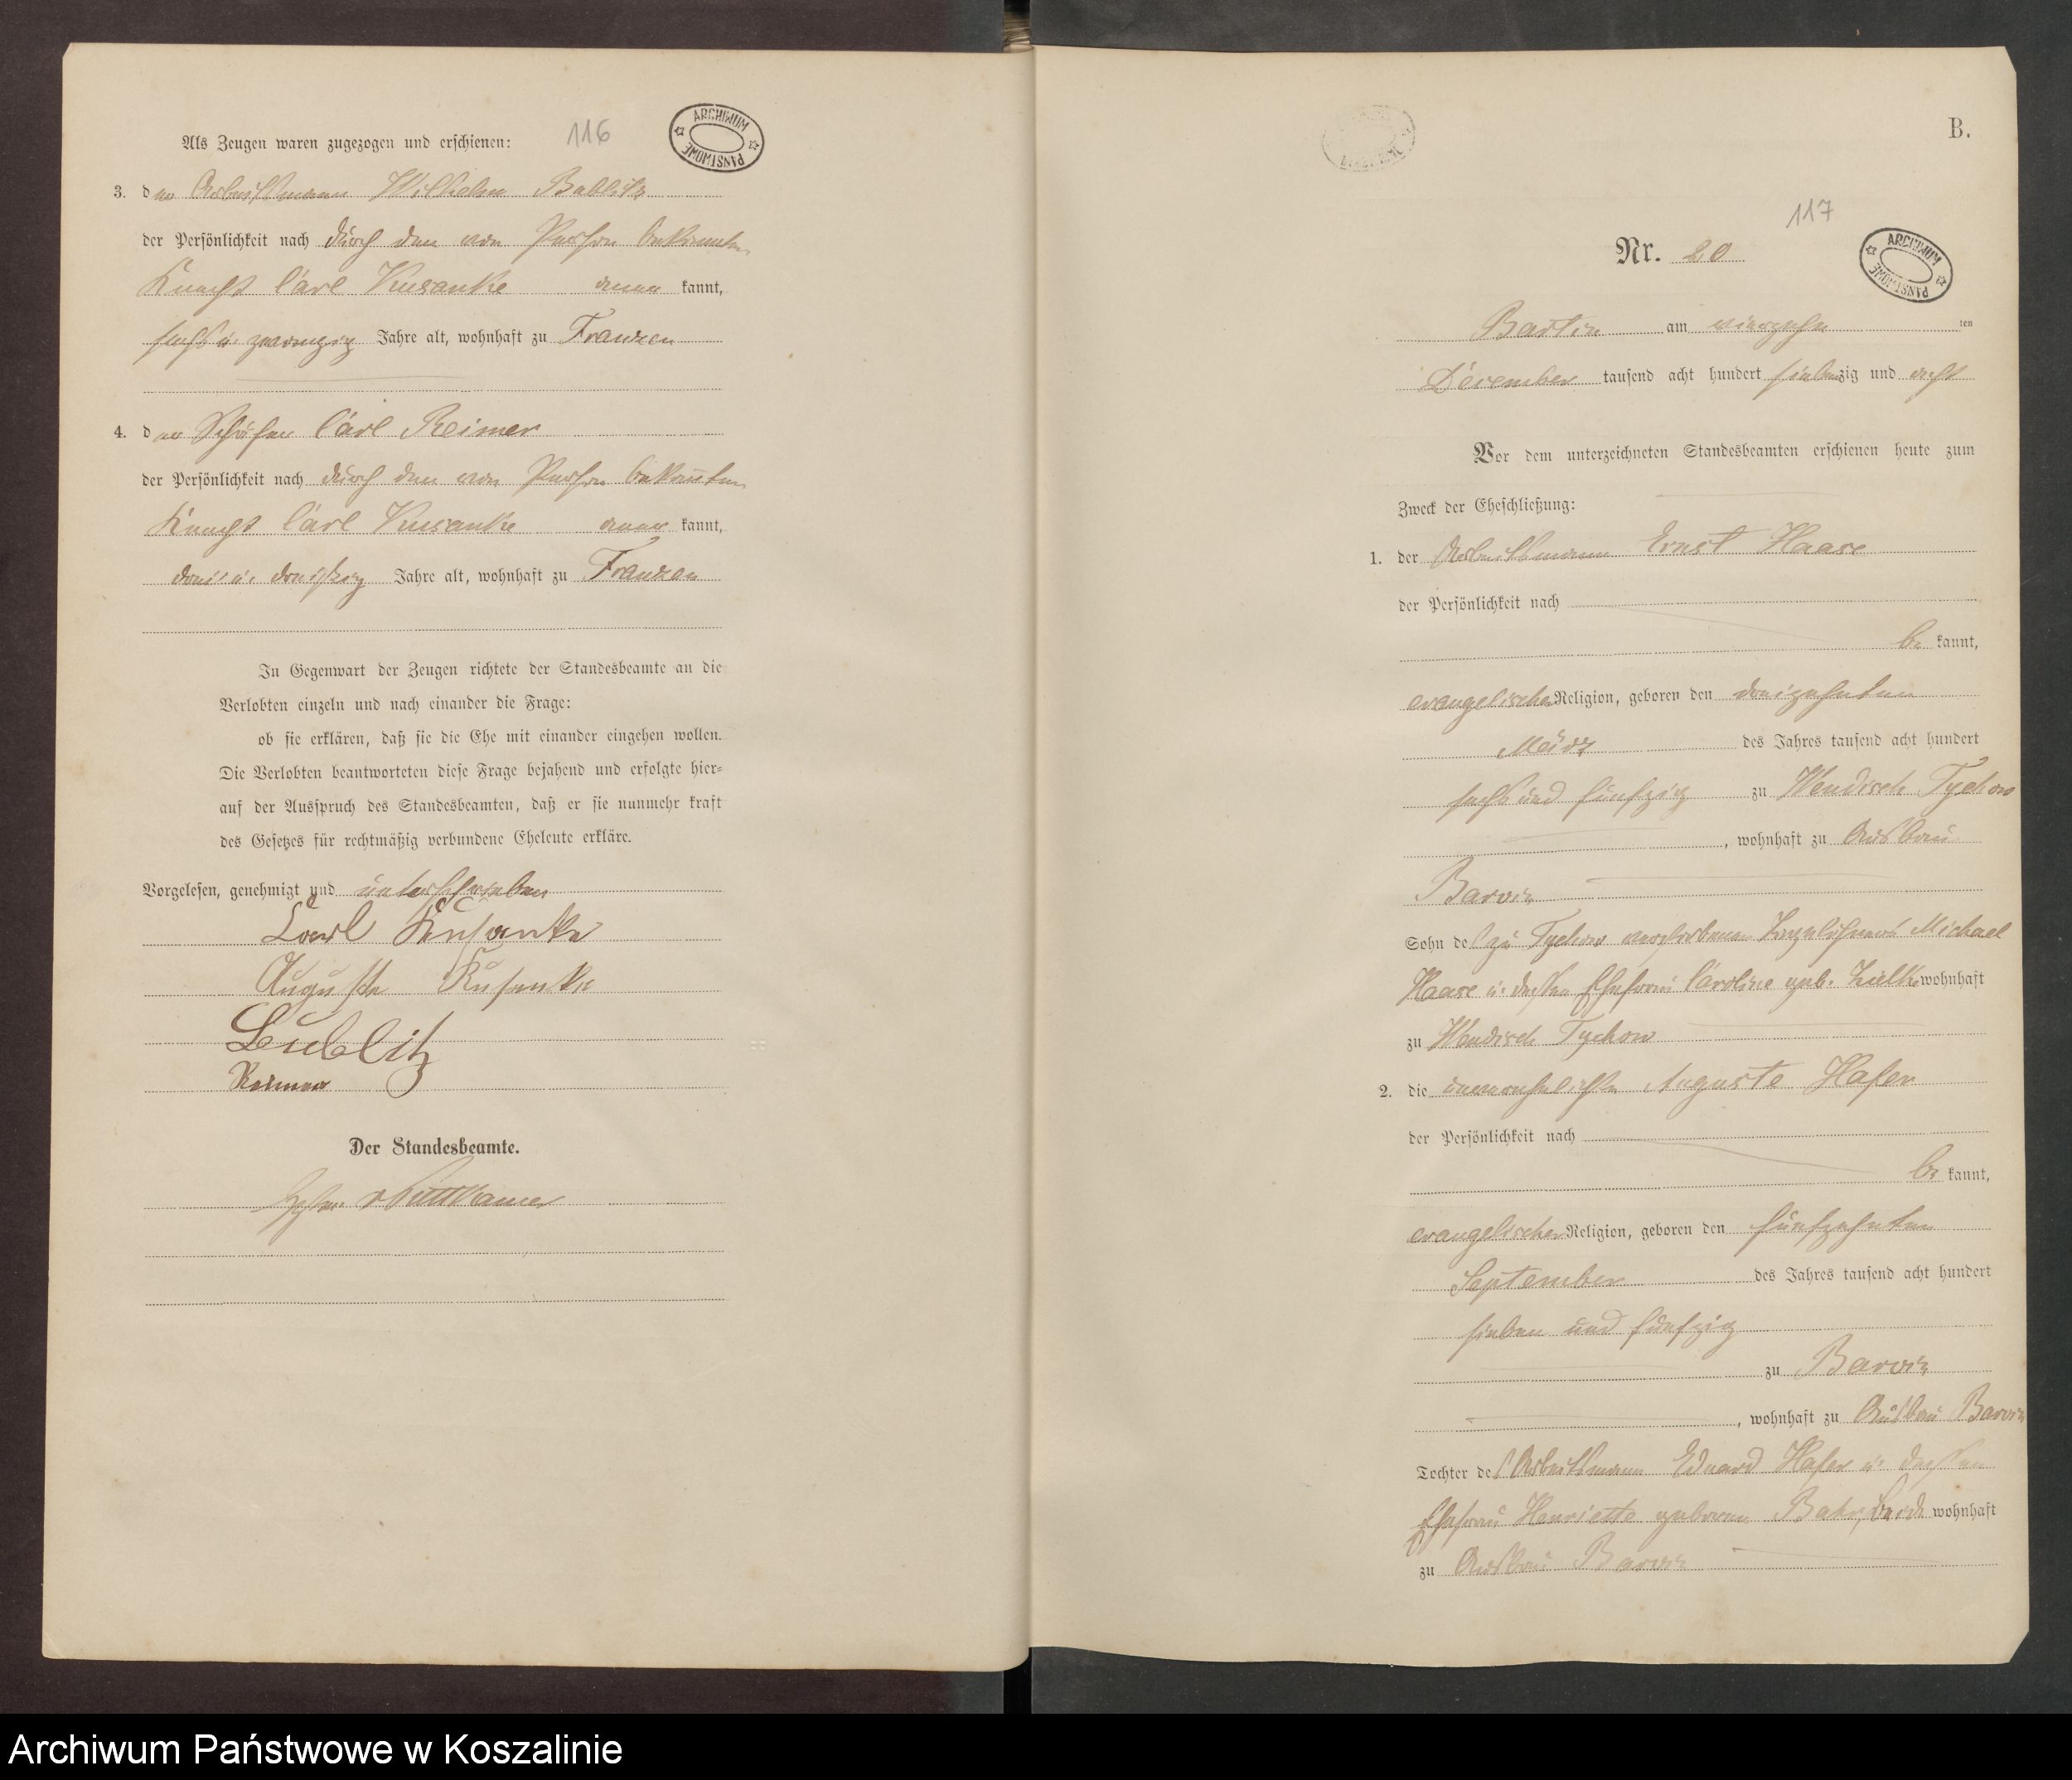 116
ARCHIWUM PAŃSTWOWE
Als Zeugen waren zugezogen und erschienen:
3. der Arbeitsmann Wilhelm Bublitz
der Persönlichkeit nach durch den von Person bekannten
Knecht Carl Kusanke aner kannt,
sechs u. zwanzig Jahre alt, wohnhaft zu Franzen
4. der Schäfer Carl Reimer
der Persönlichkeit nach durch den von Person bekannten
Knecht Carl Kusanke aner kannt,
drei u. dreißig Jahre alt, wohnhaft zu Franzen
In Gegenwart der Zeugen richtete der Standesbeamte an die
Verlobten einzeln und nach einander die Frage:
ob sie erklären, daß sie die Ehe mit einander eingehen wollen.
Die Verlobten beantworteten diese Frage bejahend und erfolgte hier-
auf der Ausspruch des Standesbeamten, daß er sie nunmehr kraft
des Gesetzes für rechtmäßig verbundene Eheleute erkläre.
Vorgelesen, genehmigt und unterschrieben
Carl Kusanke
Auguste Kusanke
Bublitz
Reimer
Der Standesbeamte.
v Puttkamer
B.
117
ARCHIWUM PAŃSTWOWE
Nr. 20
Bartin am vierzehn ten
December tausend acht hundert siebenzig und acht
Vor dem unterzeichneten Standesbeamten erschienen heute zum
Zweck der Eheschließung:
1. der Arbeitsmann Ernst Haase
der Persönlichkeit nach
be kannt,
evangelischer Religion, geboren den dreizehnten
März des Jahres tausend acht hundert
sechs und fünfzig zu Wendisch Tychow
, wohnhaft zu Ausbau
Barvin
Sohn des zu Tychow verstorbenen Michael
Haase u. dessen Ehefrau Caroline geb. wohnhaft
zu Wendisch Tychow
2. die unverehelichte Auguste Hafer
der Persönlichkeit nach
be kannt,
evangelischer Religion, geboren den fünfzehnten
September des Jahres tausend acht hundert
sieben und fünfzig
zu Barvin
, wohnhaft zu Ausbau Barvin
Tochter des Arbeitsmann Eduard Hafer u. dessen
Ehefrau Henriette geboren wohnhaft
zu Ausbau Barvin
Archiwum Państwowe w Koszalinie